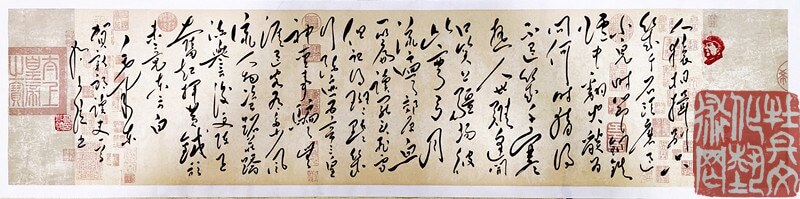 人猿相揖别只
几个石头磨过
小儿时节铜铁
炉中翻火焰为
问何时猜得
不过几千寒
热人世难逢开
口笑上疆场彼
此弯弓月
流遍了郊原血
一篇读罢头飞雪
但记得斑斑点点几
行陈迹五帝三皇
神圣事骗了无
涯过客有多少风
流人物盗跖庄蹻
流誉后更陈王
奋起挥黄钺歌
未竟东方白
毛泽东
贺新郎读史一首